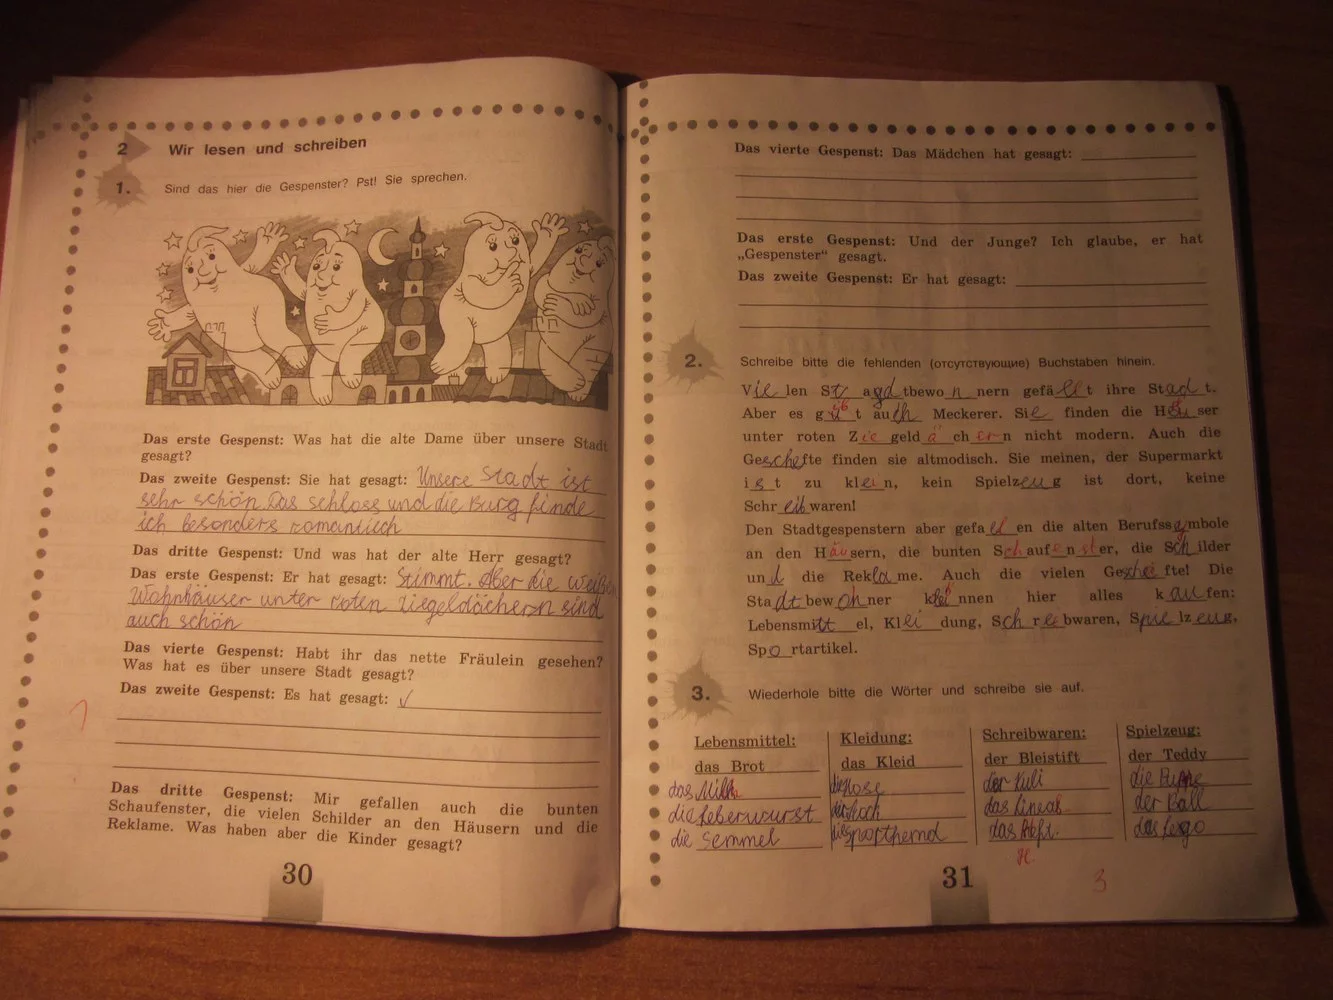 2 Wir lesen und schreiben
1. Sind das hier die Gespenster? Pst! Sie sprechen.
Das erste Gespenst: Was hat die alte Dame über unsere Stadt
gesagt?
Das zweite Gespenst: Sie hat gesagt: Unsere Stadt ist
sehr schön. Das schloss und die Burg finde
ich besonders romantisch
Das dritte Gespenst: Und was hat der alte Herr gesagt?
Das erste Gespenst: Er hat gesagt: Stimmt. Aber die weißen
Wohnhäuser unter roten Ziegeldächern sind
auch schön
Das vierte Gespenst: Habt ihr das nette Fräulein gesehen?
Was hat es über unsere Stadt gesagt?
Das zweite Gespenst: Es hat gesagt:
Das dritte Gespenst: Mir gefallen auch die bunten
Schaufenster, die vielen Schilder an den Häusern und die
Reklame. Was haben aber die Kinder gesagt?
30
Das vierte Gespenst: Das Mädchen hat gesagt:
Das erste Gespenst: Und der Junge? Ich glaube, er hat
„Gespenster“ gesagt.
Das zweite Gespenst: Er hat gesagt:
2. Schreibe bitte die fehlenden (отсутствующие) Buchstaben hinein.
Vielen bewonnern gefällt ihre Stadt.
Aber es auch Meckerer. Sie finden die Häuser
unter roten Ziegeldächern nicht modern. Auch die
Geschefte finden sie altmodisch. Sie meinen, der Supermarkt
ist zu klein, kein Spielzeug ist dort, keine
Schreibwaren!
Den Stadtgespenstern aber gefallen die alten Berufssymbole
an den Häusern, die bunten Schaufenster, die Schilder
und die Reklame. Auch die vielen Die
Stadtbewohner hier alles kaufen:
Lebensmittel, Kleidung, Schreibwaren, Spielzeug,
Sportartikel.
3. Wiederhole bitte die Wörter und schreibe sie auf.
Lebensmittel: Kleidung: Schreibwaren: Spielzeug:
das Brot das Kleid der Bleistift der Teddy
das Milk die Hose der Kuli die Puppe
die Leberwurst der Roch das Lineal der Ball
die Semmel die sporthemd das Heft. das Lego
31
3